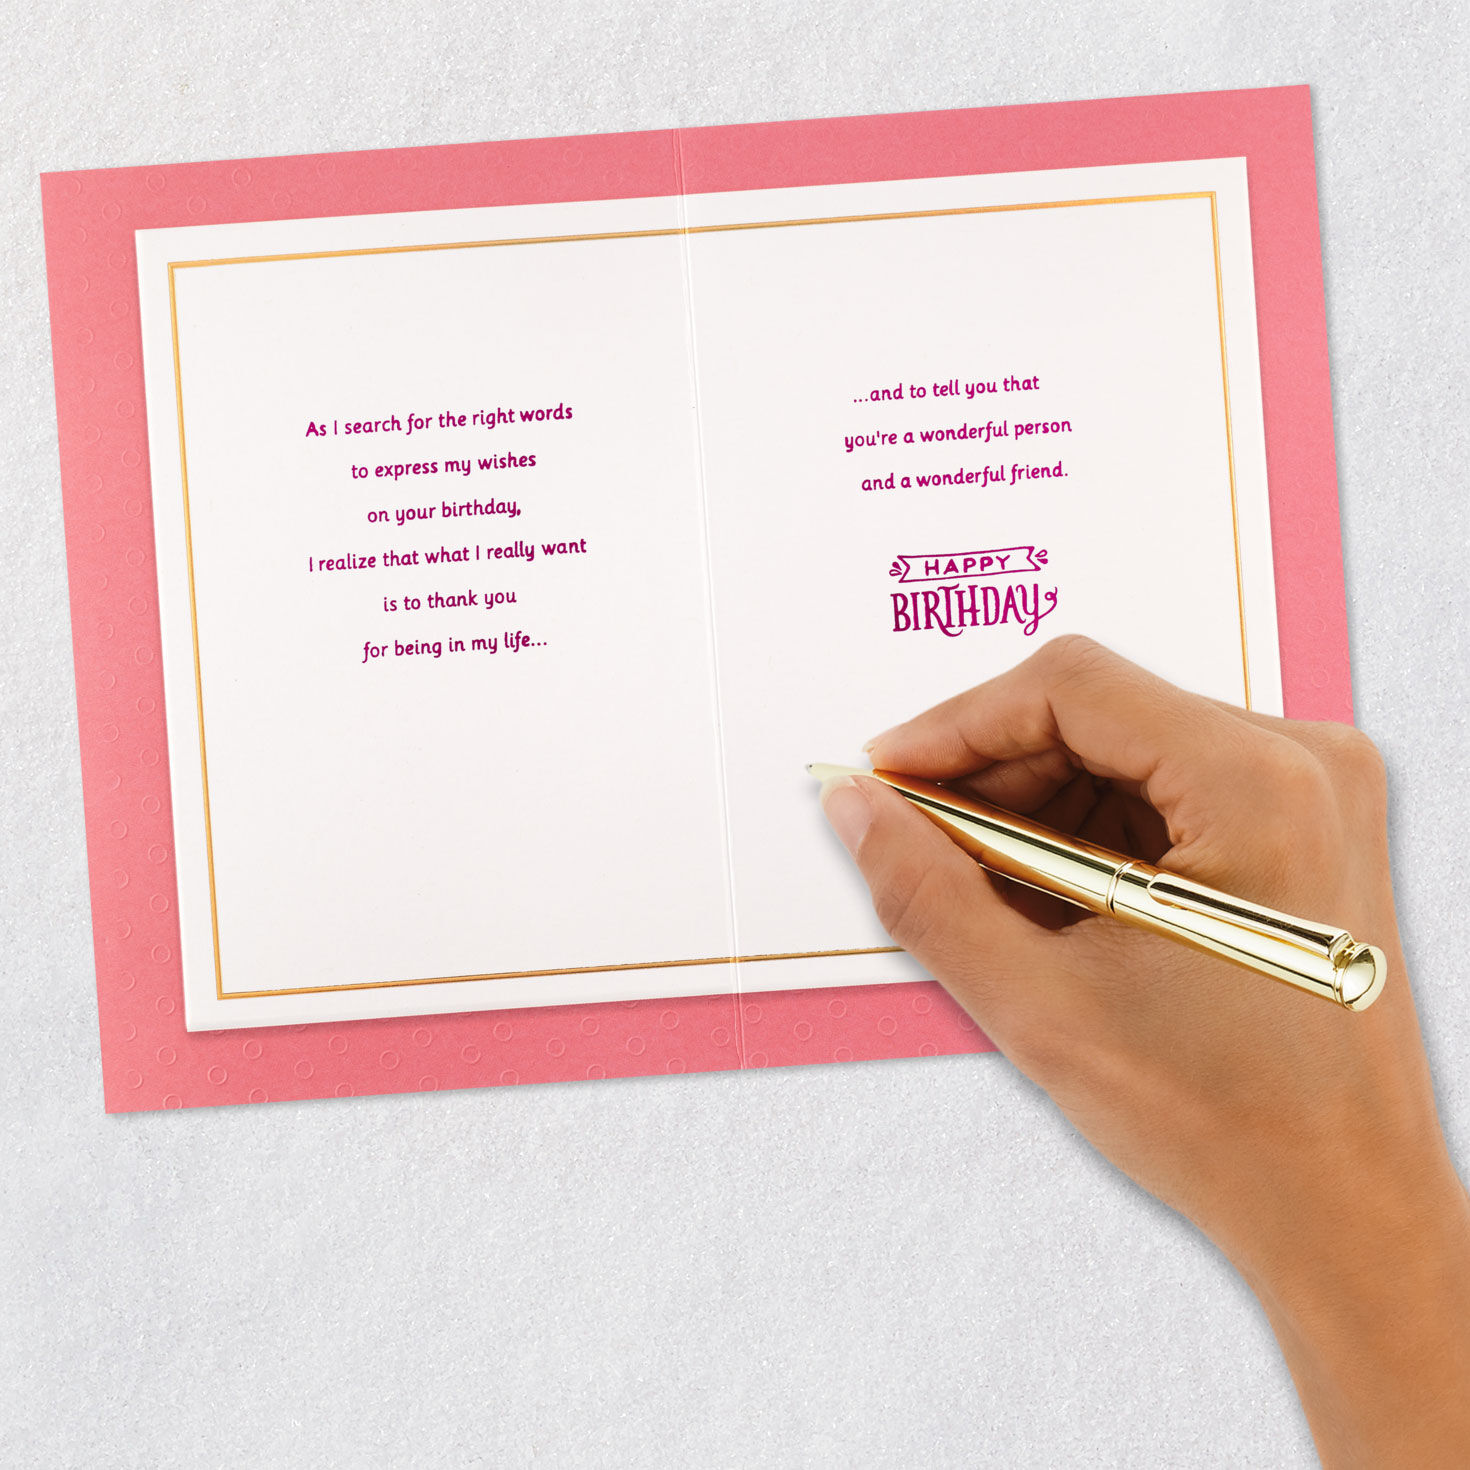 As I search for the right words
to express my wishes
on your birthday,
I realize that what I really want
is to thank you
for being in my life...
...and to tell you that
you're a wonderful person
and a wonderful friend.
HAPPY
BIRTHDAY